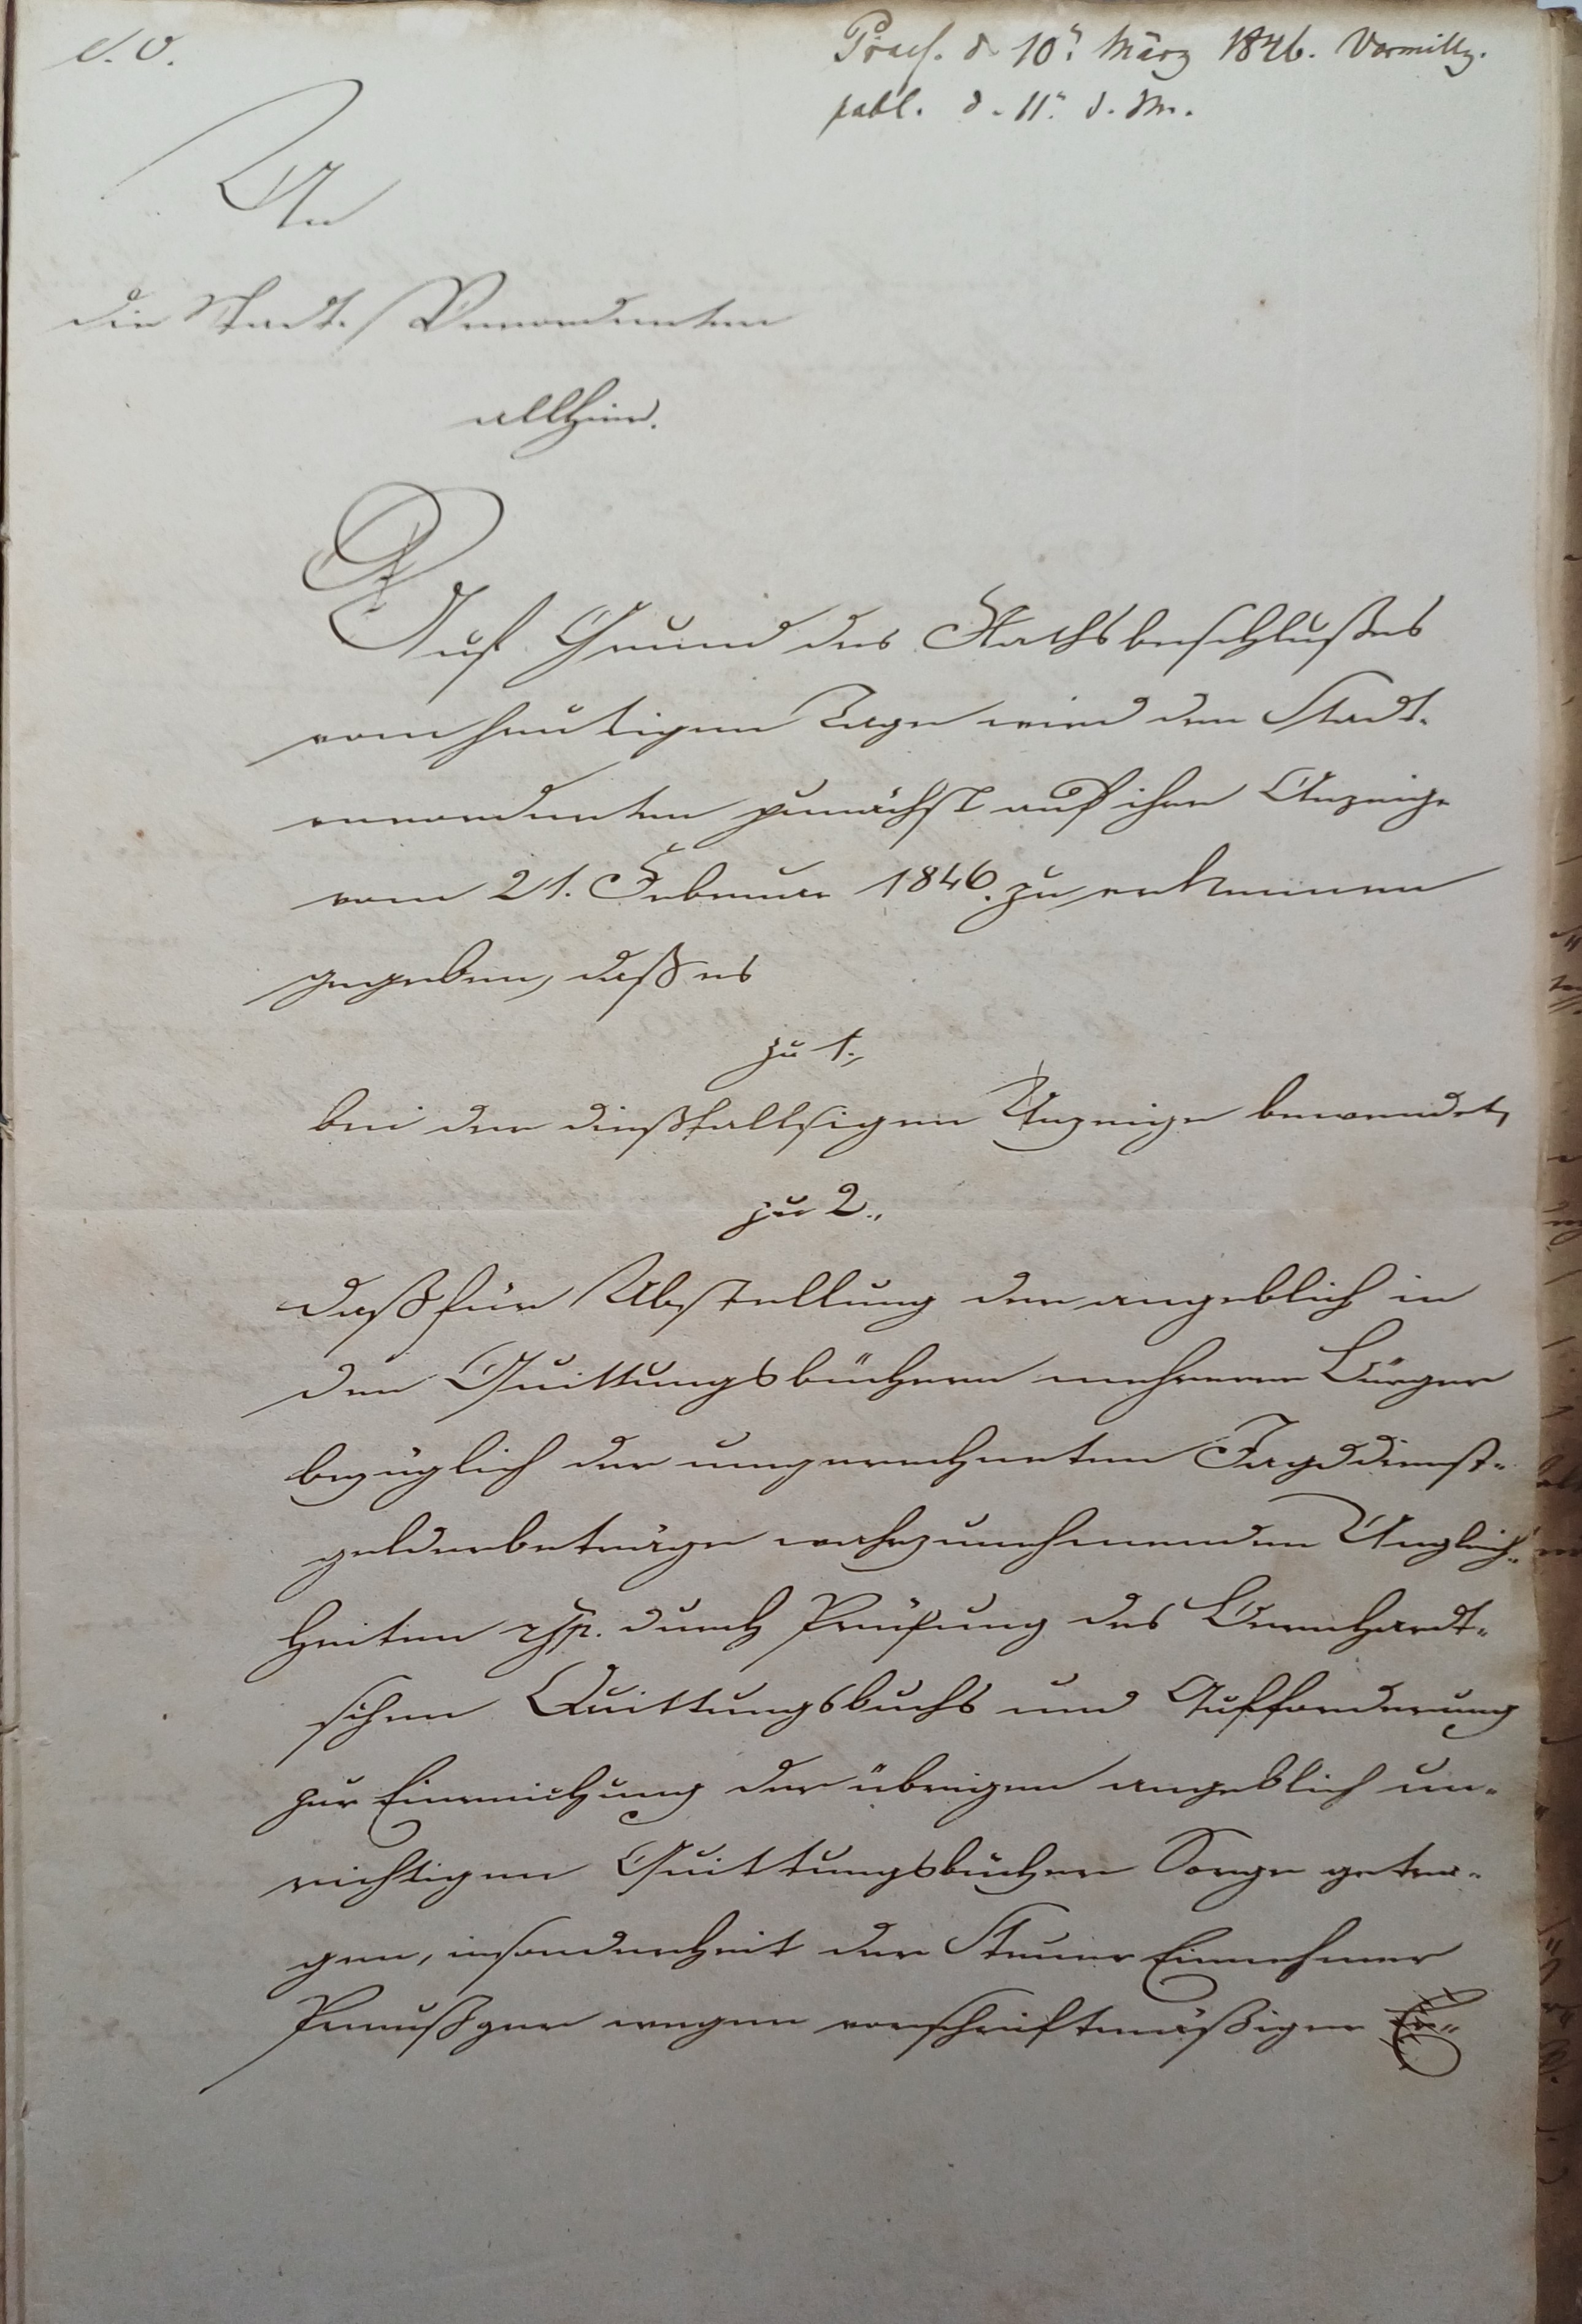 Praes. d. 10n März 1846. Vormittg.
publ. d. 11n d. M.
An
die Stadt-Verordneten
allhier.
Auf Grund des Rathsbeschlußes
vom heutigen Tage wird den Stadt-
verordneten zunächst auf ihre Anzeige
vom 21. Februar 1846. zu erkennen
gegeben, daß es
zu 1.,
bei der dießfallsigen Anzeige bewendet,
zu 2.,
daß für Abstellung der angeblich in
den Quittungsbüchern mehrerer Bürger
bezüglich der umgerechneten Jagddienst-
gelderbeträge wahrzunehmenden Ungleich-
heiten resp. durch Prüfung des Bernhardt-
schen Quittungsbuchs und Aufforderung
zur Einreichung der übrigen angeblich un-
richtigen Quittungsbücher Sorge getra-
gen, insonderheit der Steuer Einnehmer
wegen vorschriftmäßiger